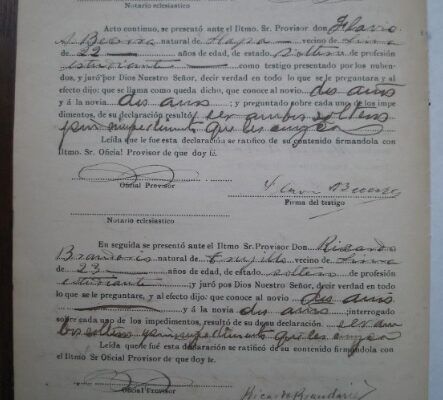 Notario eclesiástico
Acto continuo, se presentó ante el Iltmo. Sr. Provisor don Flavio
A Becerra natural de vecino de Lima
de 22 años de edad, de estado soltero de profesión
estudiante como testigo presentado por los nuben-
dos, y juró por Dios Nuestro Señor, decir verdad en todo lo que se le preguntara y al
efecto dijo: que se llama como queda dicho, que conoce al novio dos años
y á la novia dos años ; y preguntado sobre cada uno de los impe
dimentos, de su declaración resultó ser ambos solteros
sin impedimento que les
Leída que le fué esta declaración se ratificó de su contenido firmandola con
Iltmo. Sr. Oficial Provisor de que doy fé.
Oficial Provisor
Becerra
Firma del testigo
Notario eclesiastico
En seguida se presentó ante el Iltmo Sr. Provisor Don Ricardo
natural de Trujillo vecino de Lima
de 23 años de edad, de estado soltero de profesión
estudiante y juró por Dios Nuestro Señor, decir verdad en todo
lo que se le preguntare, y al efecto dijo: que conoce al novio dos años
y á la novia dos años ; interrogado
sobre cada uno de los impedimentos, resultó de su declaración ser am
bos solteros sin impedimento que les
Leída que le fué esta declaración se ratificó de su contenido firmandola con
el Iltmo Sr Oficial Provisor de que doy fe.
Oficial Provisor
Ricardo